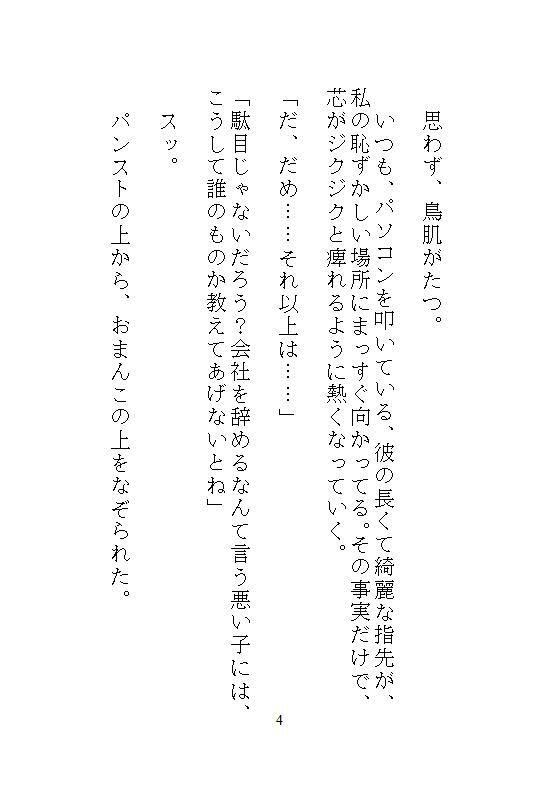 思わず、鳥肌がたつ。
いつも、パソコンを叩いている、彼の長くて綺麗な指先が、
私の恥ずかしい場所にまっすぐ向かってる。その事実だけで、
芯がジクジクと痺れるように熱くなっていく。
「だ、だめ……それ以上は……」
「駄目じゃないだろう？会社を辞めるなんて言う悪い子には、
こうして誰のものか教えてあげないとね」
スッ。
パンストの上から、おまんこの上をなぞられた。
4